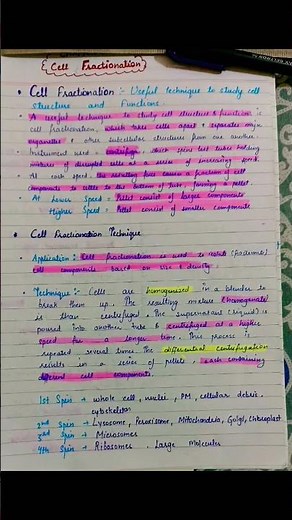 {Cell Fractionation}
• Cell Fractionation :- Useful technique to study cell
structure and Functions
• A useful technique to study cell structure & function is
cell fractionation, which takes cells apart & separates major
organelles & other subcellular structures from one another.
• Instrument used = centrifuge, which spins test tubes holding
mixtures of disrupted cells at a series of increasing speed.
• At each speed, the resulting force causes a fraction of cell
components to settle to the bottom of tube, forming a pellet
• At Lower Speed = Pellet consist of larger components
Higher Speed = Pellet consist of smaller components
• Cell Fractionation Technique
Application: Cell fractionation is used to
cell components based on size & density.
• Technique :- Cells are homogenized in a blender to
break them up. The resulting mixture (homogenate)
is than centrifuged. The supernatant (liquid) is
poured into another tube & centrifuged at a higher
speed for a longer time. This process is
repeated several times. The differential centrifugation
results in a series of pellet, each containing
different cell components.
1st Spin → whole cell, nuclei, PM, cellular debris,
cytoskeleton
2nd Spin → Lysosome, Peroxisome, Mitochondria, Golgi, Chloroplast
3rd Spin → Microsomes
4th Spin → Ribosomes, Large Molecules